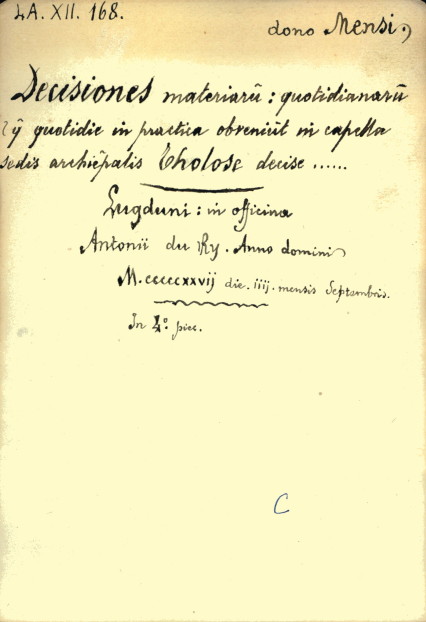 LA. XII. 168.
dono Mensi.
Decisiones materiarū : quotidianarū
ꝗ̄ quotidie in practica obveniūt in capella
sedis archiēpalis Tholose decise ......
Lugduni : in officina
Antonii du Ry. Anno domini
M.cccccxxvij die. iiij. mensis Septembris.
In 4º. picc.
C